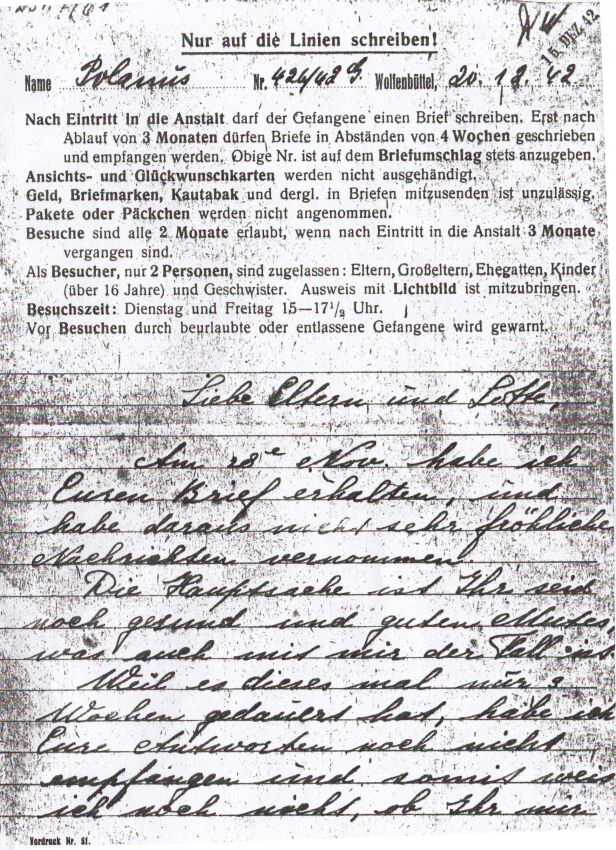 Nur auf die Linien schreiben!
16. DEZ. 42
Name Polanus Nr. 426/42 G Wolfenbüttel, 20.12.42
Nach Eintritt in die Anstalt darf der Gefangene einen Brief schreiben. Erst nach
Ablauf von 3 Monaten dürfen Briefe in Abständen von 4 Wochen geschrieben
und empfangen werden. Obige Nr. ist auf dem Briefumschlag stets anzugeben.
Ansichts- und Glückwunschkarten werden nicht ausgehändigt.
Geld, Briefmarken, Kautabak und dergl. in Briefen mitzusenden ist unzulässig.
Pakete oder Päckchen werden nicht angenommen.
Besuche sind alle 2 Monate erlaubt, wenn nach Eintritt in die Anstalt 3 Monate
vergangen sind.
Als Besucher, nur 2 Personen, sind zugelassen: Eltern, Großeltern, Ehegatten, Kinder
(über 16 Jahre) und Geschwister. Ausweis mit Lichtbild ist mitzubringen.
Besuchszeit: Dienstag und Freitag 15—17½ Uhr.
Vor Besuchen durch beurlaubte oder entlassene Gefangene wird gewarnt.
Liebe Eltern und Lotte,
Am 28e Nov. habe ich
Euren Brief erhalten, und
habe daraus nicht sehr fröhliche
Nachrichten vernommen.
Die Hauptsache ist Ihr seid
noch gesund und guten Mutes,
was auch mit mir der Fall ist
Weil es dieses mal nur 2
Wochen gedauert hat, habe ich
Eure Antworten noch nicht
empfangen und somit weis
ich noch nicht, ob Ihr mir
Vordruck Nr. 51.